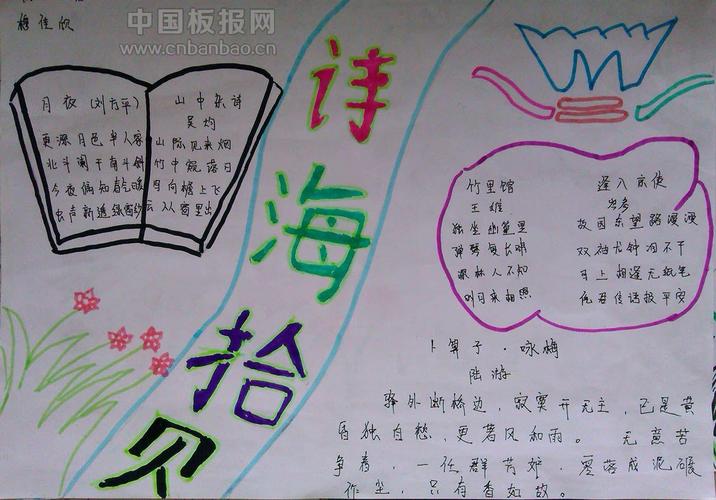 中国板报网
www.cnbanbao.cn
诗海拾贝
月夜（刘方平）
更深月色半人家
北斗阑干南斗斜
今夜偏知春气暖
虫声新透绿窗纱
山中杂诗
吴均
山际见来烟
竹中窥落日
鸟向檐上飞
云从窗里出
竹里馆
王维
独坐幽篁里
弹琴复长啸
深林人不知
明月来相照
逢入京使
岑参
故园东望路漫漫
双袖龙钟泪不干
马上相逢无纸笔
凭君传语报平安
卜算子·咏梅
陆游
驿外断桥边，寂寞开无主，已是黄
昏独自愁，更著风和雨。 无意苦
争春，一任群芳妒，零落成泥碾
作尘，只有香如故。